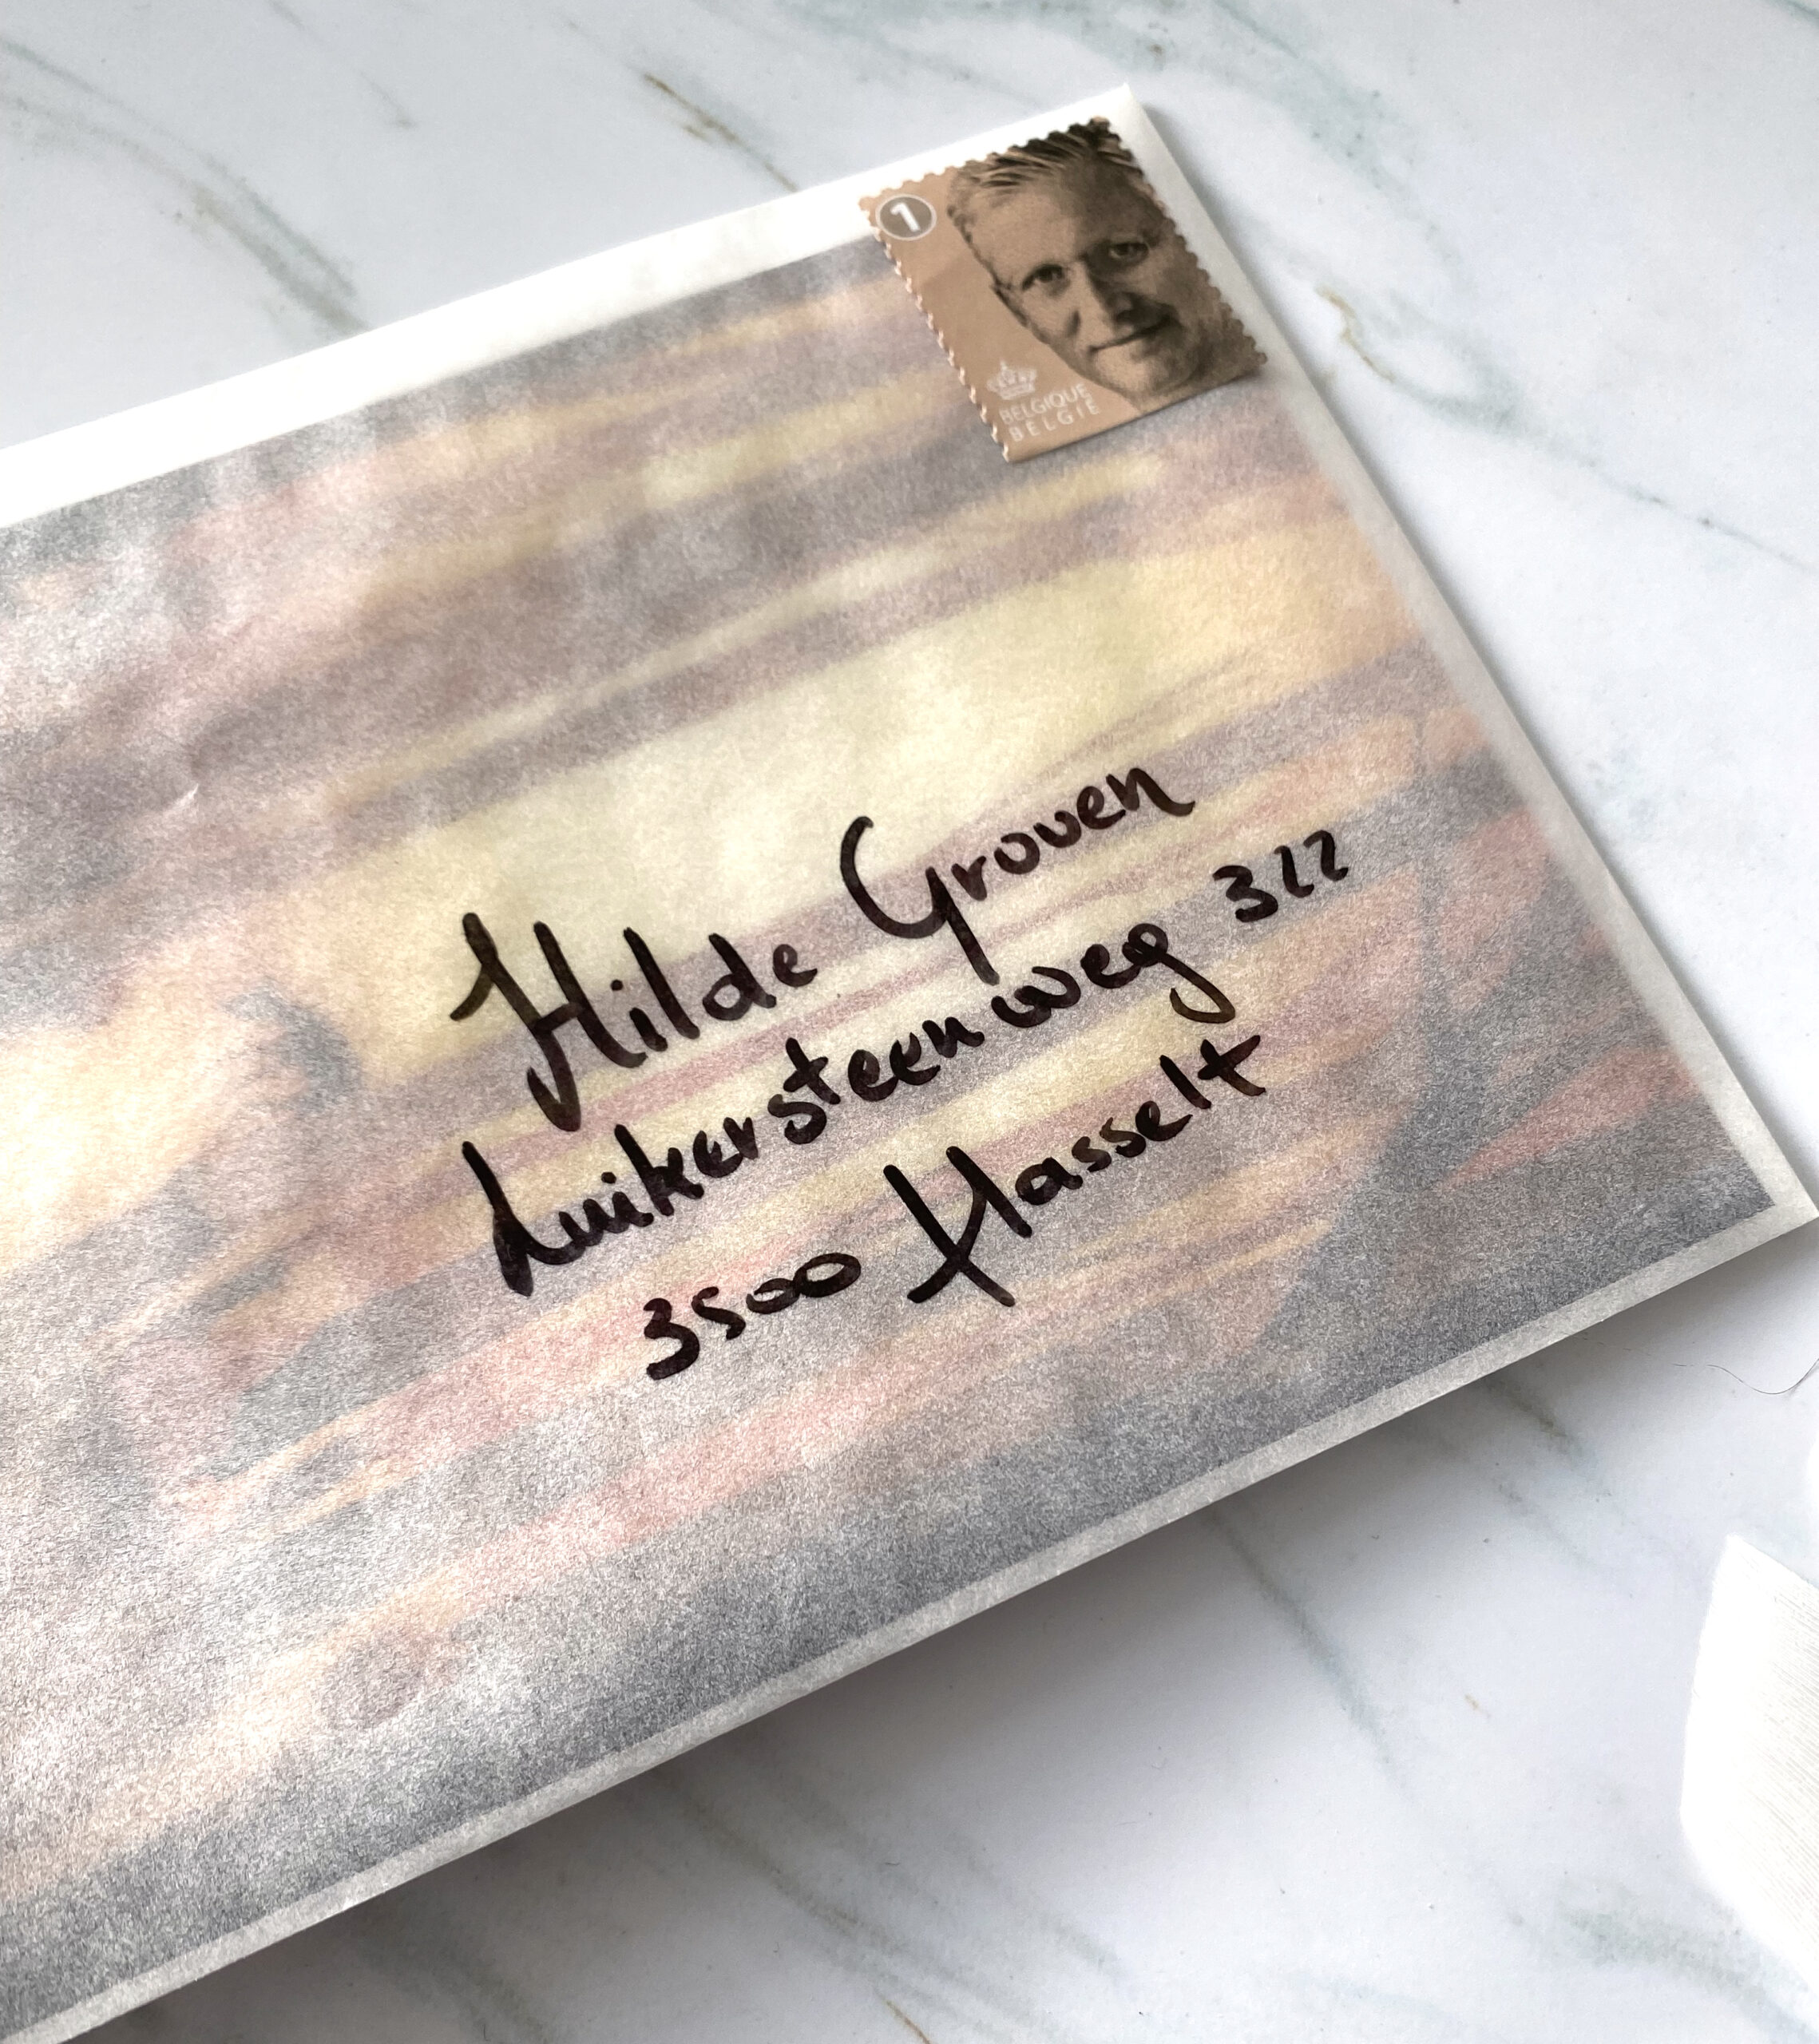 1
BELGIQUE
BELGIË
Hilde Groven
Luikersteenweg 322
3500 Hasselt